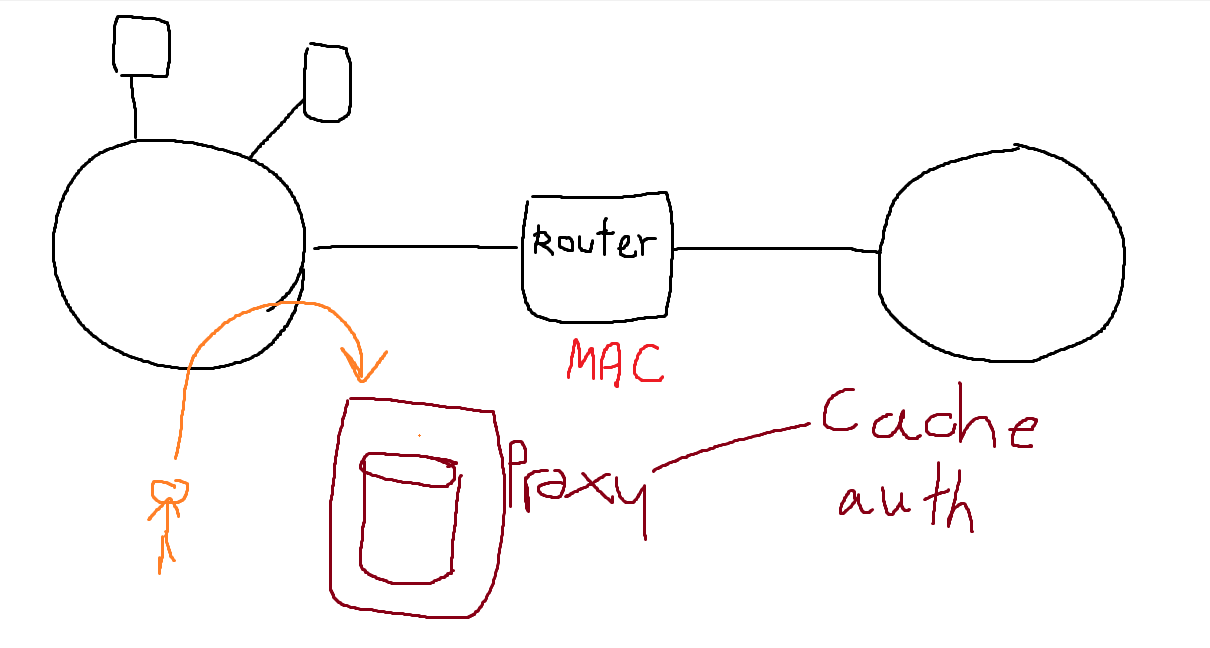 Router
MAC
Proxy
Cache
auth